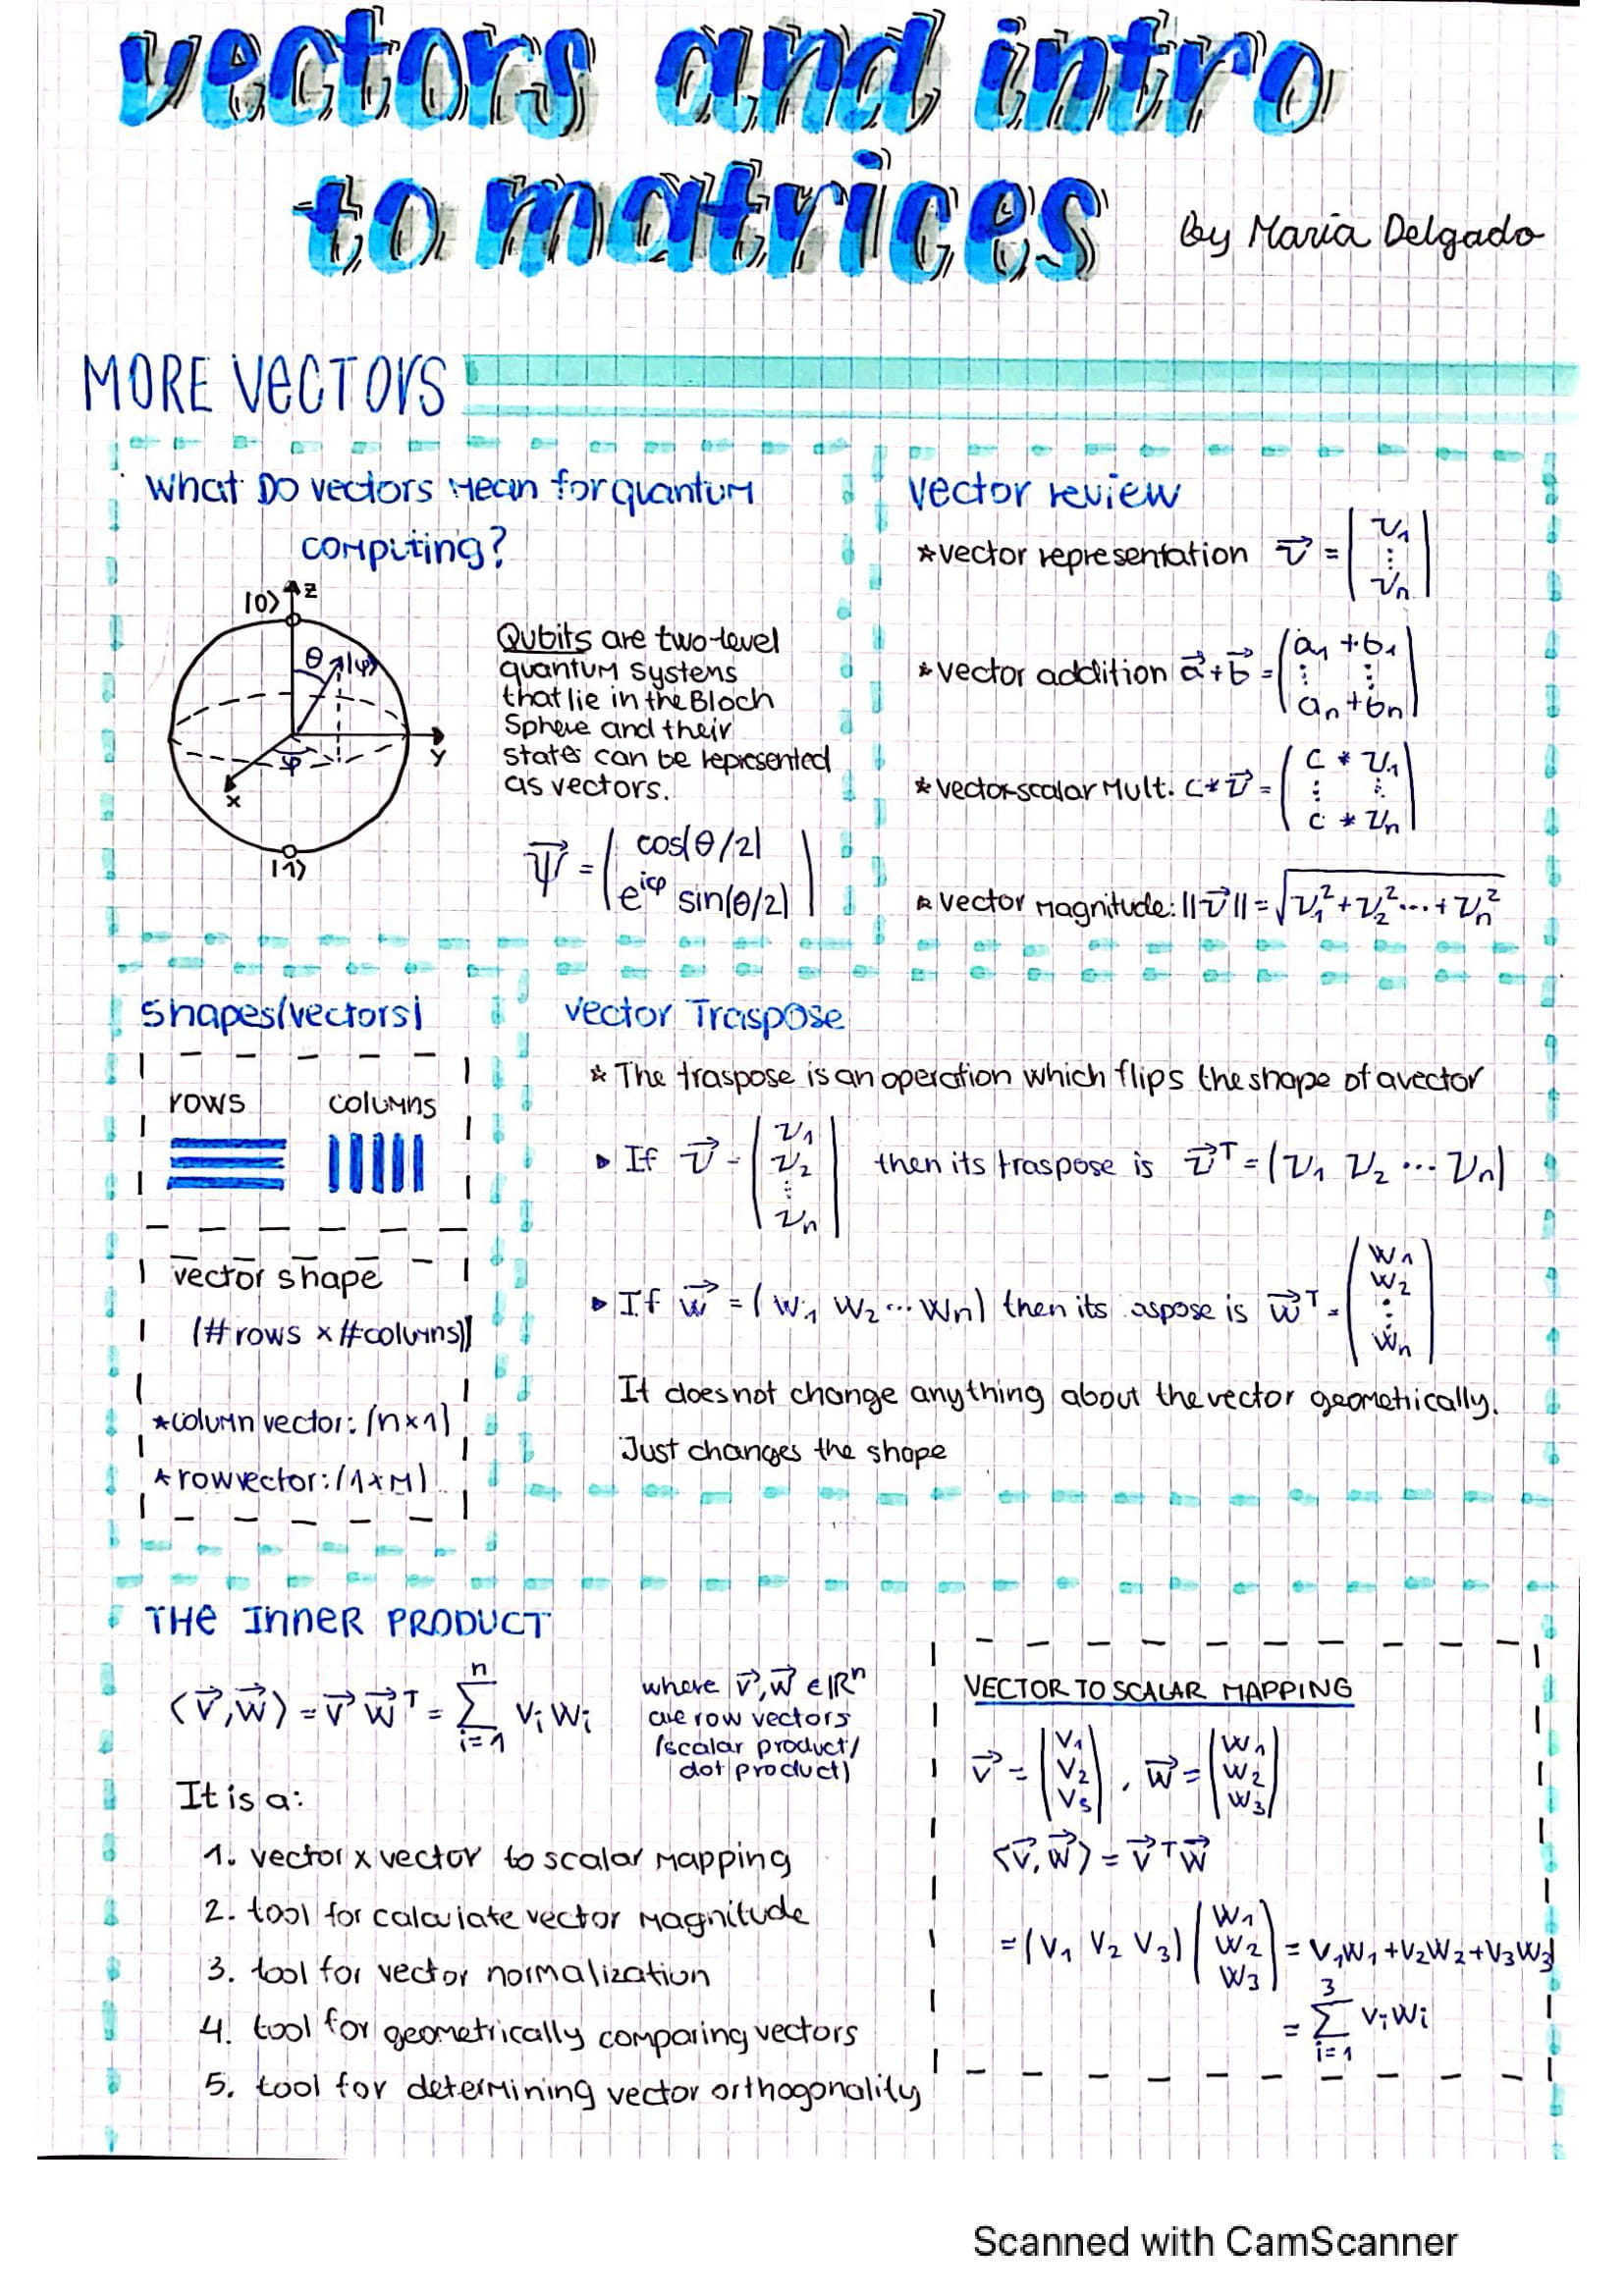 vectors and intro
to matrices
by Maria Delgado
MORE VECTORS
What Do vectors Mean for quantum
computing?
|0⟩ z
θ |φ⟩
y
φ
x
|1⟩
Qubits are two-level
quantum systems
that lie in the Bloch
Sphere and their
states can be represented
as vectors.
ψ⃗ = ( cos(θ/2)
e^iφ sin(θ/2) )
vector review
*vector representation v⃗ = ( v₁
⋮
vₙ )
*vector addition a⃗+b⃗ = ( a₁ + b₁
⋮ ⋮
aₙ + bₙ )
*vector-scalar Mult. c*v⃗ = ( c * v₁
⋮ ⋮
c * vₙ )
*vector magnitude: ||v⃗|| = √(v₁² + v₂² ... + vₙ²)
shapes (vectors)
rows columns
vector shape
(#rows x #columns)
*column vector: (n x 1)
*row vector: (1 x M)
vector Traspose
* The traspose is an operation which flips the shape of a vector
▸ If v⃗ = ( v₁
v₂
⋮
vₙ ) then its traspose is v⃗ᵀ = (v₁ v₂ ... vₙ)
▸ If w⃗ = (w₁ w₂ ... wₙ) then its aspose is w⃗ᵀ = ( w₁
w₂
⋮
wₙ )
It does not change anything about the vector geometrically.
Just changes the shape
THE INNER PRODUCT
⟨v⃗,w⃗⟩ = v⃗ w⃗ᵀ = Σ_{i=1}^{n} vᵢ wᵢ
where v⃗,w⃗ ∈ ℝⁿ
are row vectors
(scalar product/
dot product)
It is a:
1. vector x vector to scalar mapping
2. tool for calculate vector magnitude
3. tool for vector normalization
4. tool for geometrically comparing vectors
5. tool for determining vector orthogonality
VECTOR TO SCALAR MAPPING
v⃗ = ( v₁
v₂
v₃ ) , w⃗ = ( w₁
w₂
w₃ )
⟨v⃗,w⃗⟩ = v⃗ᵀ w⃗
= (v₁ v₂ v₃) ( w₁
w₂
w₃ ) = v₁w₁ + v₂w₂ + v₃w₃
= Σ_{i=1}^{3} vᵢ wᵢ
Scanned with CamScanner